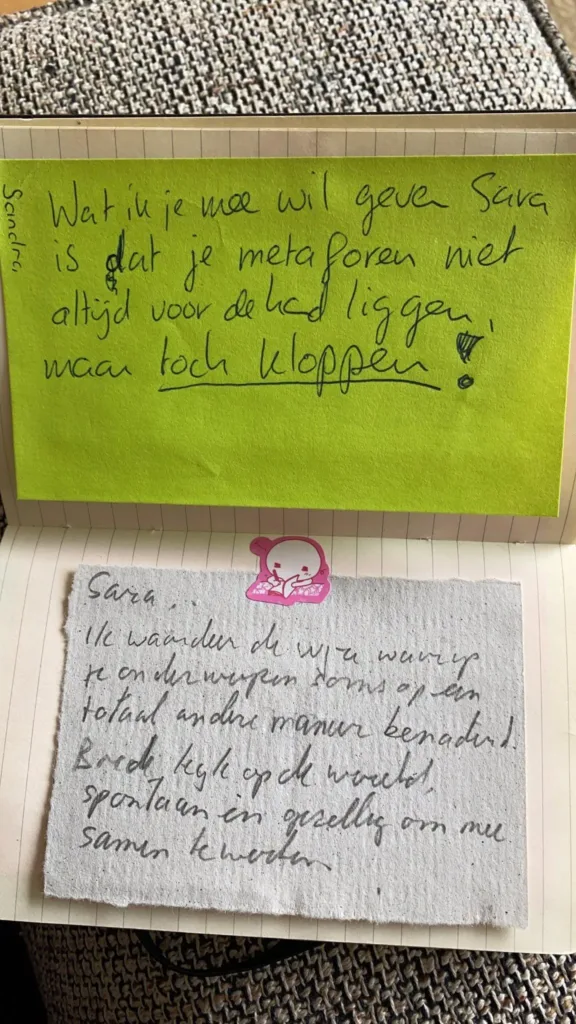 Sandra
Wat ik je mee wil geven Sara
is dat je metaforen niet
altijd voor de had liggen,
maar toch kloppen!
Sara..
Ik waardeer de wijze waarop
je onderwerpen soms op een
totaal andere manier benadert.
Brede kijk op de wereld,
spontaan en gezellig om mee
samen te werken